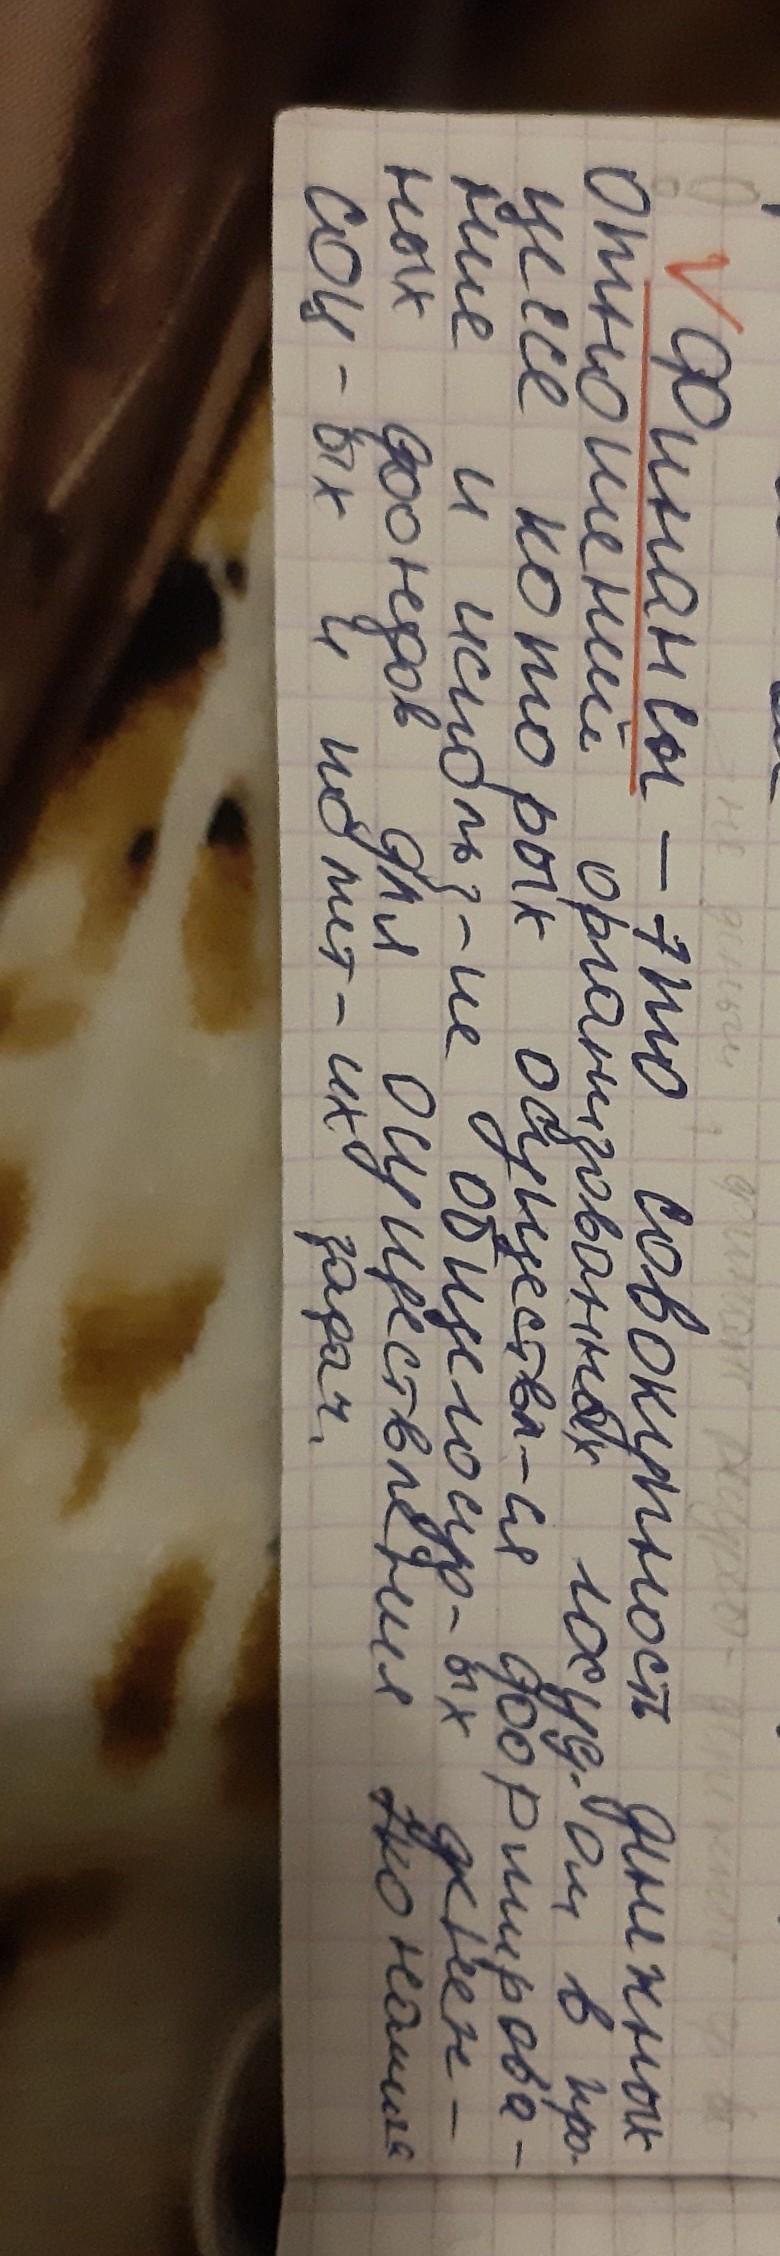 ✓ Финансы – это совокупность денежных
отношений организованных госуд-ом в про-
цессе которых осуществл-ся формирова-
ние и использ-ие общегосуд-ых денеж-
ных фондов для осуществления экономич
соц-ых и полит-их задач.